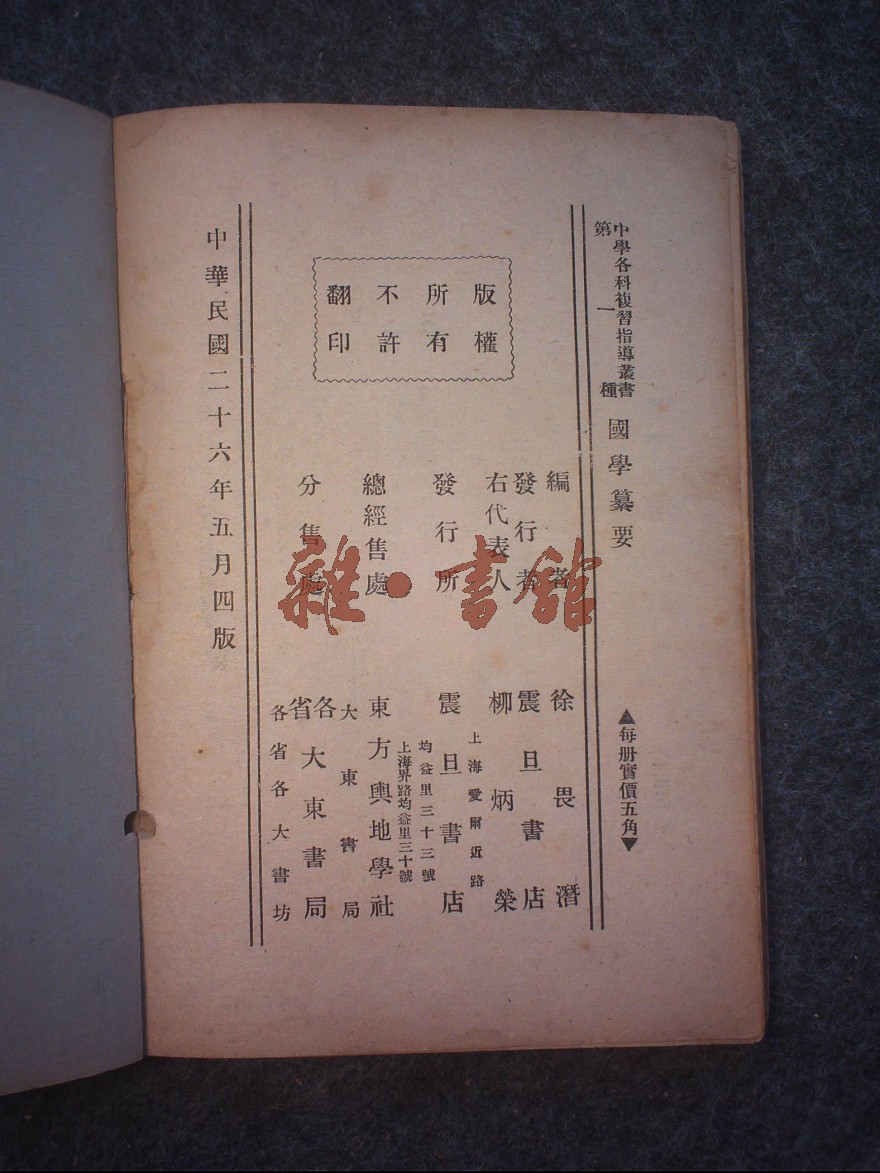 中學各科複習指導叢書
第一種
國學纂要
▲每册實價五角▼
版權
所有
不許
翻印
編者
徐畏潛
發行者
震旦書店
右代表人
柳炳榮
上海愛爾近路
發行所
震旦書店
均益里三十三號
上海界路均益里三十號
總經售處
東方輿地學社
大東書局
分售處
各省大東書局
各省各大書坊
中華民國二十六年五月四版
雜·書館